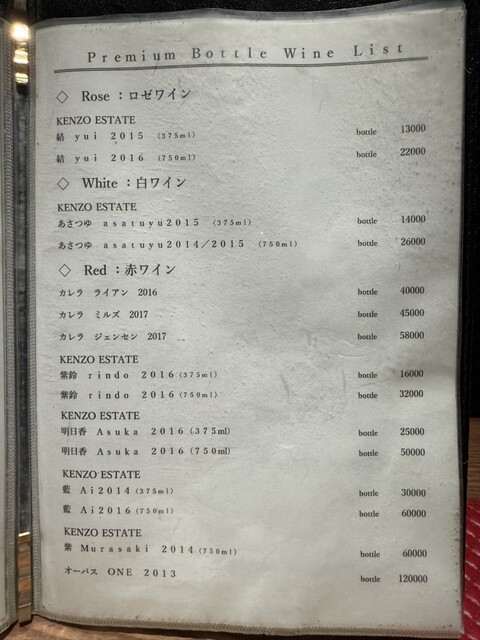 Premium Bottle Wine List
◇ Rose ：ロゼワイン
KENZO ESTATE
結 yui 2015 （375ml） bottle 13000
結 yui 2016 （750ml） bottle 22000
◇ White ：白ワイン
KENZO ESTATE
あさつゆ asatuyu2015 （375ml） bottle 14000
あさつゆ asatuyu2014／2015 （750ml） bottle 26000
◇ Red ：赤ワイン
カレラ ライアン 2016 bottle 40000
カレラ ミルズ 2017 bottle 45000
カレラ ジェンセン 2017 bottle 58000
KENZO ESTATE
紫鈴 rindo 2016（375ml） bottle 16000
紫鈴 rindo 2016（750ml） bottle 32000
KENZO ESTATE
明日香 Asuka 2016（375ml） bottle 25000
明日香 Asuka 2016（750ml） bottle 50000
KENZO ESTATE
藍 Ai2014（375ml） bottle 30000
藍 Ai2016（750ml） bottle 60000
KENZO ESTATE
紫 Murasaki 2014（750ml） bottle 60000
オーパス ONE 2013 bottle 120000